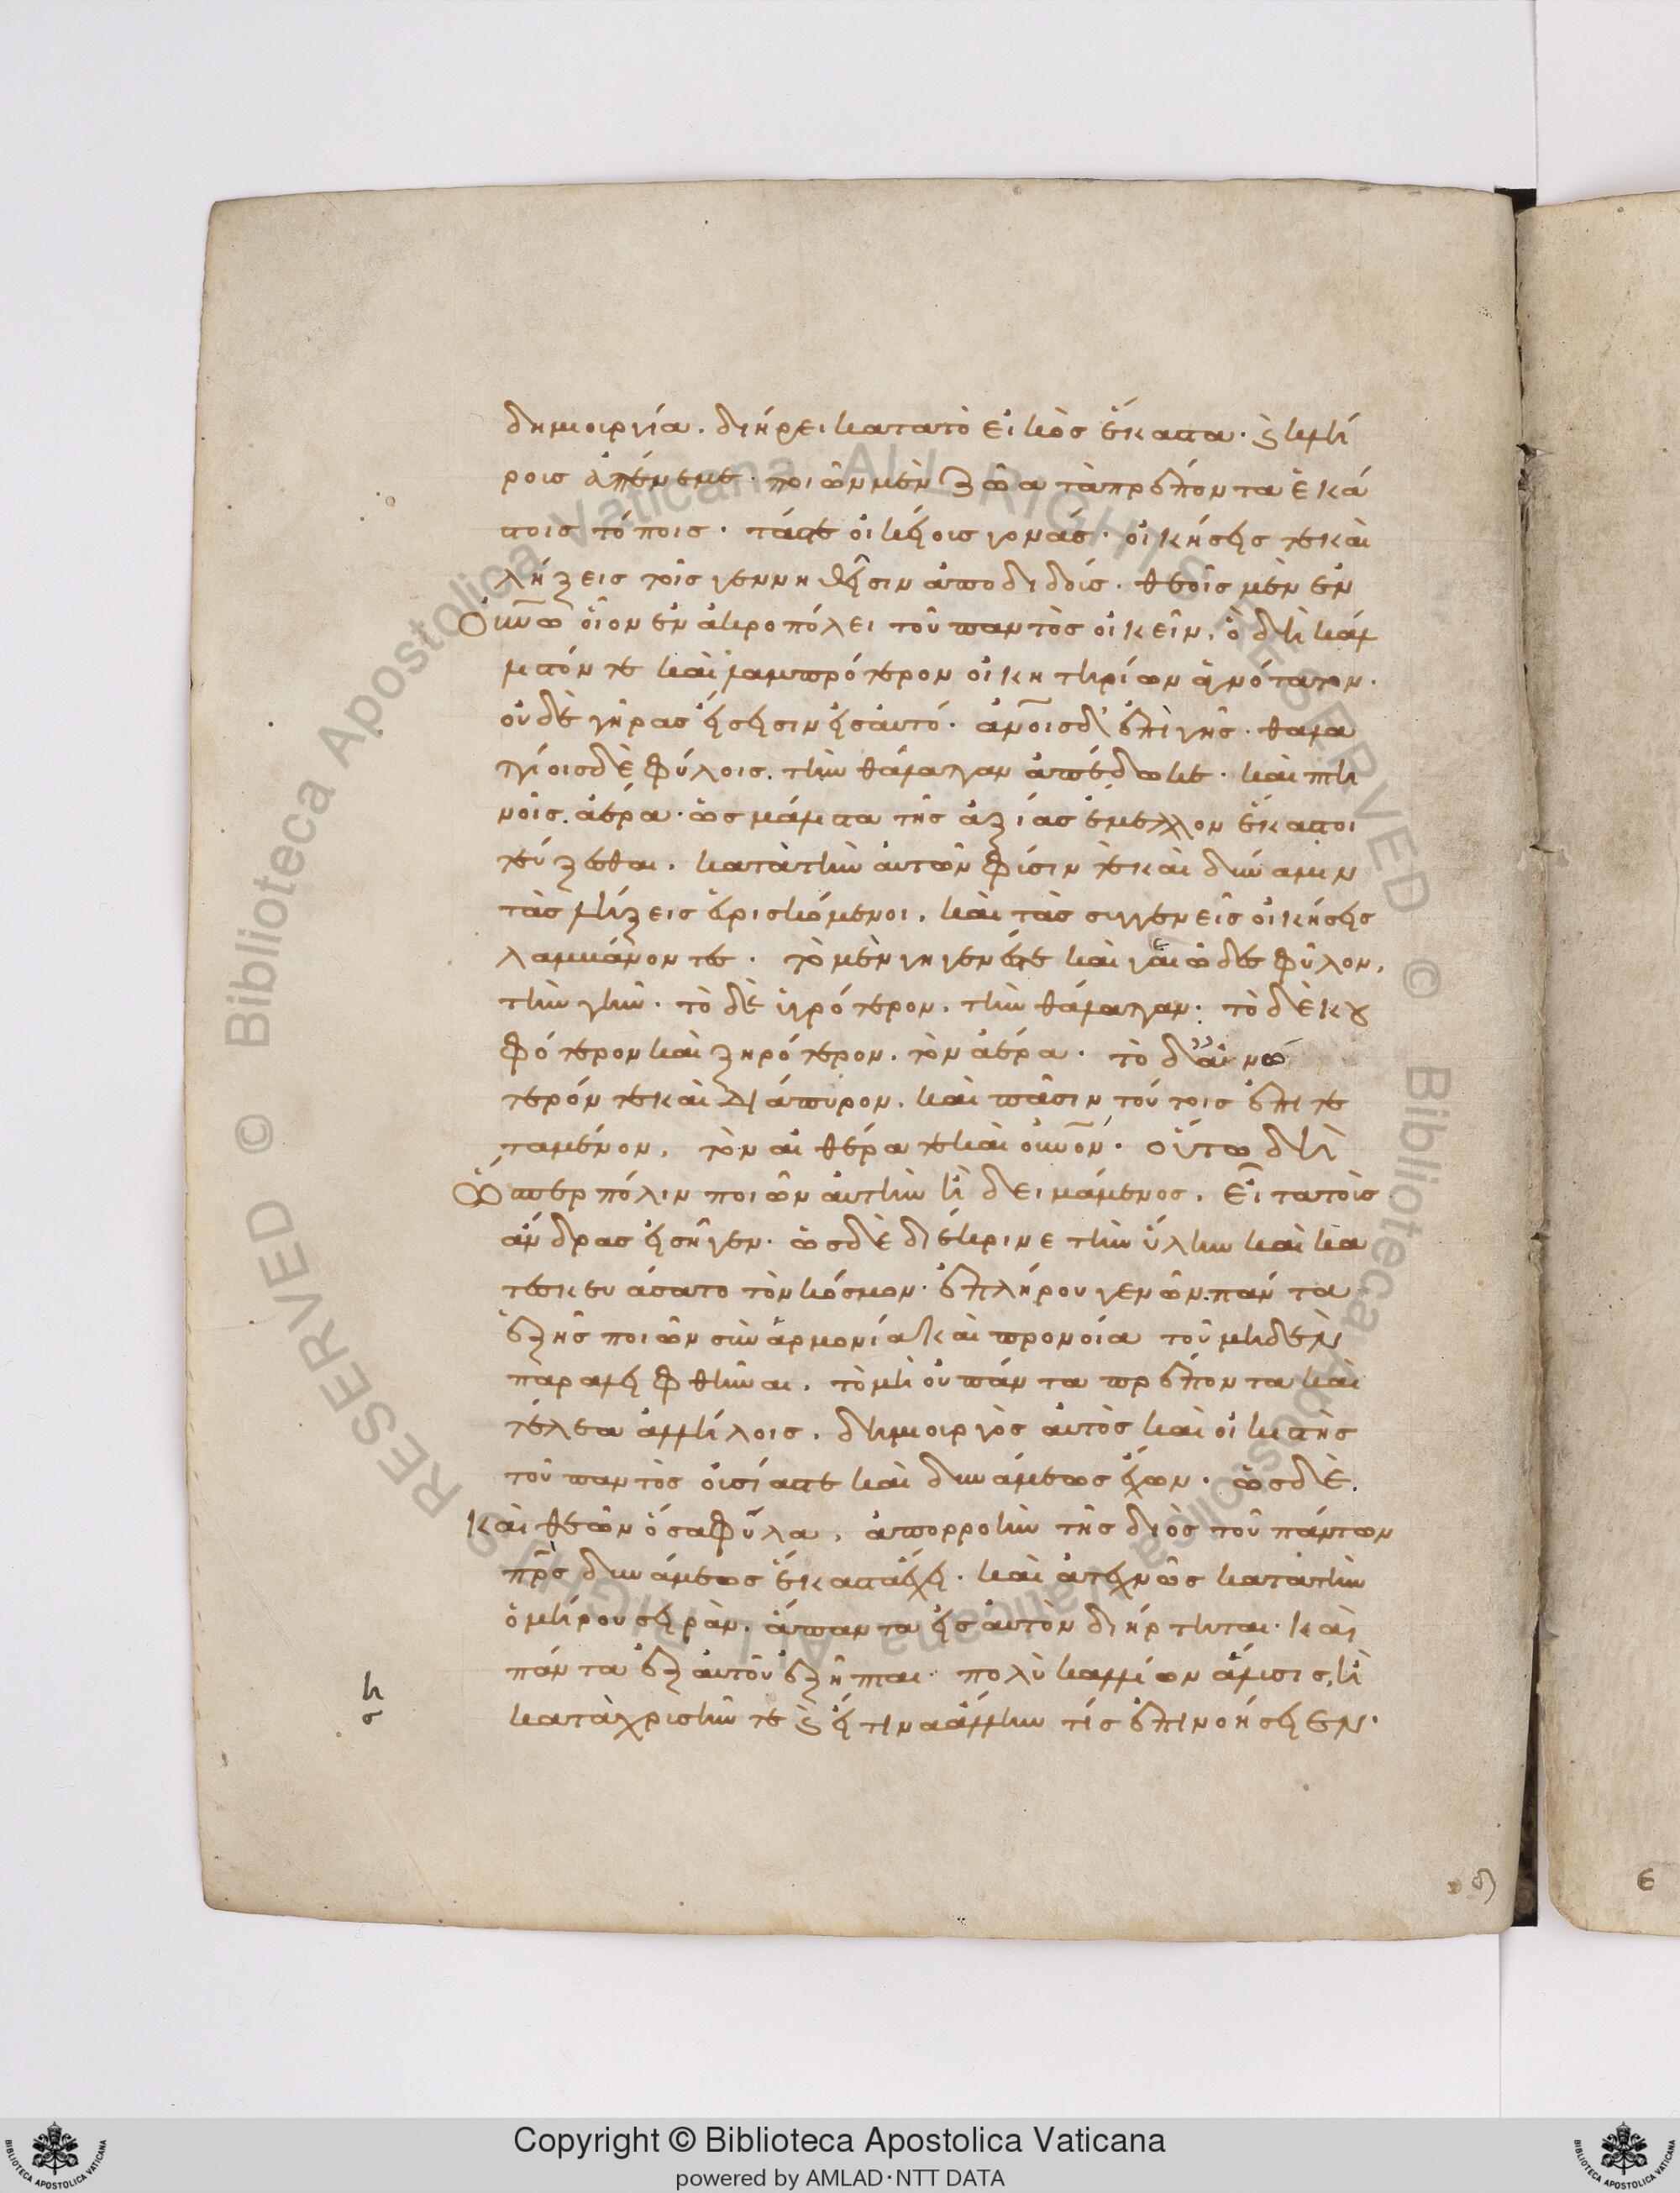 δημιουργία. διήρει κατὰ τὸ εἰκὸς ἕκαστα. καὶ κλή
ροις ἀπένεμε. ποιῶν μὲν ζῶα τὰ πρέποντα ἑκά
στοις τόποις. τάς τε οἰκείοις νομάς. οἰκήσεις τε καὶ
λήξεις τοῖς γεννηθεῖσιν ἀποδιδούς. θεοῖς μὲν ἐν
οὐνῶ οἷον ἐν ἀκροπόλει τοῦ παντὸς οἰκεῖν, ὃ δὴ κάλ
λιστόν τε καὶ λαμπρότερον οἰκητηρίων ἁγνότατον.
οὐδὲ γῆρας εἴσεισιν εἰς αὐτό. ἀνοις δ' ἐπὶ γῆς. θαλα
τίοις δὲ φύλοις. τὴν θάλατταν ἀπέδωκε. καὶ πτη
νοῖς. ἀέρα. ὡς μάλιστα τῆς ἀξίας ἔμελλον ἕκαστοι
τεύξεσθαι. κατὰ τὴν αὐτῶν φύσιν τε καὶ δύναμιν
τὰς λήξεις εὑρισκόμενοι. καὶ τὰς συγγενεῖς οἰκήσεις
λαμβάνοντες. τὸ μὲν γηγενές τε καὶ γαιῶδες φῦλον,
τὴν γῆν. τὸ δὲ ὑγρότερον. τὴν θάλατταν. τὸ δὲ κου
φότερον καὶ ξηρότερον. τὸν ἀέρα. τὸ δ' αἰνώ
τερόν τε καὶ διάπυρον. καὶ πᾶσιν τούτοις ἐπιτε
ταμένον, τὸν αἰθέρα τε καὶ οὐνόν. οὕτω δὴ
ὥσπερ πόλιν ποιῶν αὐτὴν ἢ δειμάμενος, εἶτα τοὺς
ἄνδρας εἰσῆγεν. ὡς δὲ διέκρινε τὴν ὕλην καὶ κα
τεσκευάσατο τὸν κόσμον. ἐπλήρου γενῶν. πάντα
ἑξῆς ποιῶν σὺν ἁρμονία καὶ προνοία τοῦ μηδὲν
παραλειφθῆναι. τὸ μὴ οὐ πάντα πρέποντα καὶ
τέλεα ἀλλήλοις. δημιουργὸς αὐτὸς καὶ οἰκιστὴς
τοῦ παντὸς οὐσίας τε καὶ δυνάμεως ἔχων. ὡς δὲ.
καὶ θεῶν ὅσα φῦλα, ἀπορροὴν τῆς διὸς τοῦ πάντων
πρς δυνάμεως ἕκαστα ἔχει. καὶ ἀτεχνῶς κατὰ τὴν
ὁμήρου σειρὰν. ἅπαντα εἰς αὐτὸν διήρτηται. καὶ
πάντα ἐξ αὐτοῦ ἐξῆπται. πολὺ καλλίων ἅλυσις, ἢ
κατὰ χρυσῆν τε καὶ εἴ τινα ἄλλην τίς ἐπινοήσειεν.